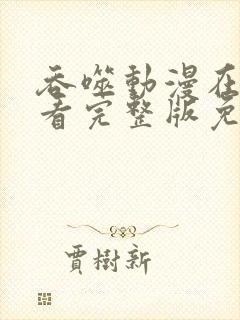 吞噬動漫在
看完整版免
賈樹新